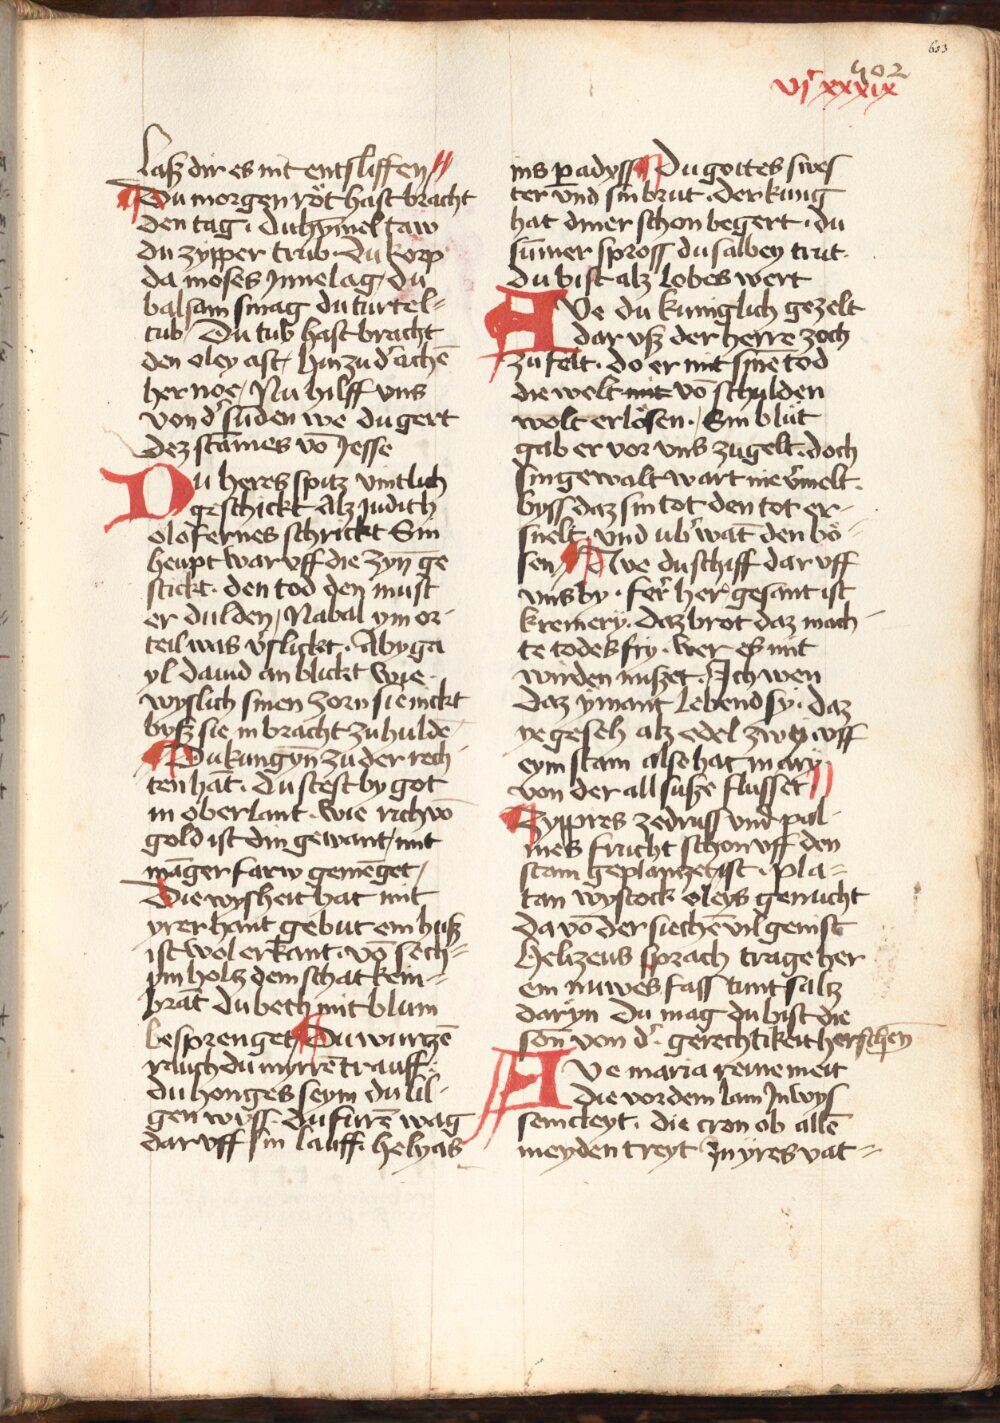 603
402
vjᶜ xxxix
Lasz dir es nit entsliffen
Du morgen röt hast bracht
den tag. du hym̄el taw
du zypper trub. Du korp
da moses Jnne lag / du
balsam smag du turtel=
tub / Du tub hast bracht
den oley ast / hin zu d' achē
her noe / Nu hilff vns
von d' sunden we du gert
dez stām̄es vō Jesse
Du heres spitz vintlich
geschickt Alz Judith
olofernes schrickt Sin
heupt war vff die zyn̄ ge
stickt. den tod den must
er dulden / Nabal ym or-
teil was v'flickt. Abyga
yl dauid an blickt wie
wyslich sinen zorn sie nickt
bysz sie in bracht zu huldē
Du kungyn̄ zu der rech
ten hāt. Du stest by got
in oberlant. wie rich vō
gold ist din gewant / mit
māger farw gemēget /
Die wysheit hat mit
yrer hant gebut ein husz
ist wol erkant. vō sech=
ym holtz dem schatkem-
brat du beth mit blum
besprenget / Du wurtzē
rauch du myrrē trauff
du honges seym du lil-
gen wyss. du furē wag
dar vff sin lauff. helyas
ins padyss Du gottes swes
ter vnd sin brut. der kung
hat diner schon begert. du
sum̄er spross du salbey trut.
du bist alz lobes wert
AVe du kuniglich gezelt
dar vsz der herre zoch
zu felt. do er mit sinē tod
die welt mit vō schulden
wolt erlösen. Sin blut
gab er vor vns zu gelt. doch
sin gewalt wart nie v'melt.
byss daz sin tot den tot er-
snelt. vnd ub'wāt den bö-
sen / Ave du schiff dar vff
vns by. fer' her gesant ist
kremery. Daz brot daz mach
te todes fry. wer es mit
wirden nuszet. Jch wen
daz ymant lebend sy. daz
ye geseh alz edel zwy. vff
eym stam alse hat mary.
von der all susze flusset
Zyppres zedruss vnd pal-
mes frucht schon vff den
stam geplantzet ist. pla=
tan wystock oleys genucht
da vō der siechē vil genist
Helizeus sprach trage her
ein nuwes fass tunt saltz
daryn Du mag du bist die
son von d' gerechtikeit herschen̄
AVe maria reine meit
die vor dem lam Jn wys
sem cleyt. die cron ob allē
meyden treyt Jn yres vat=